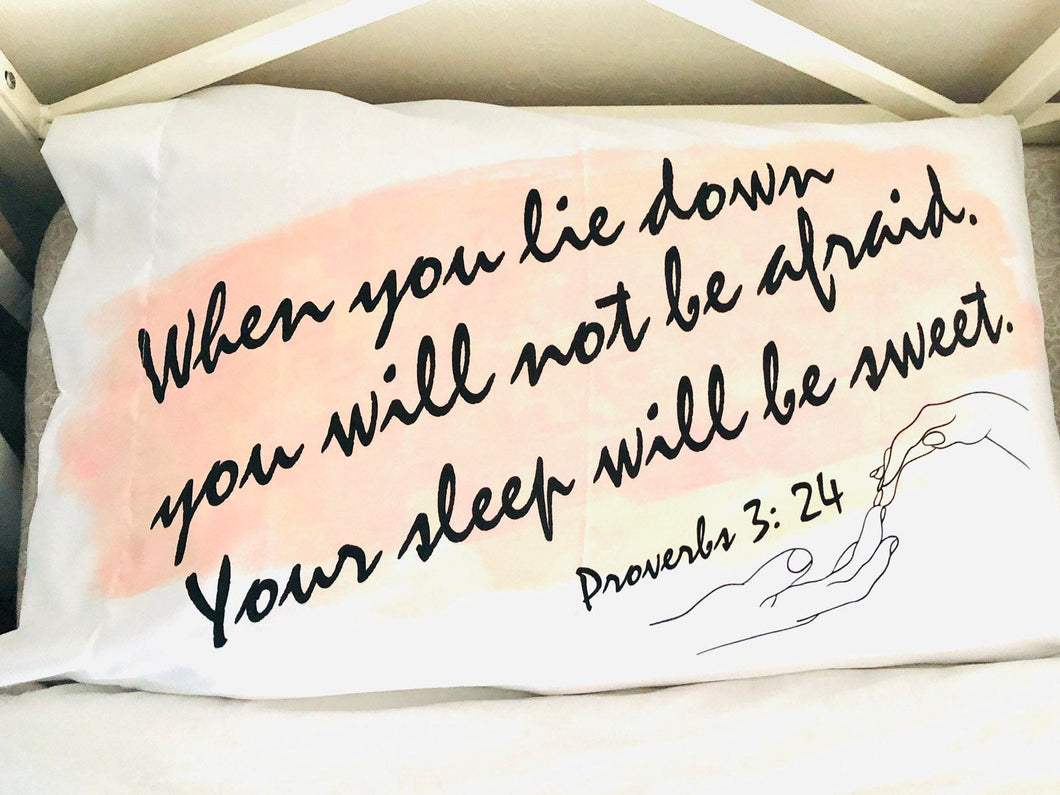 When you lie down
you will not be afraid.
Your sleep will be sweet.
Proverbs 3: 24